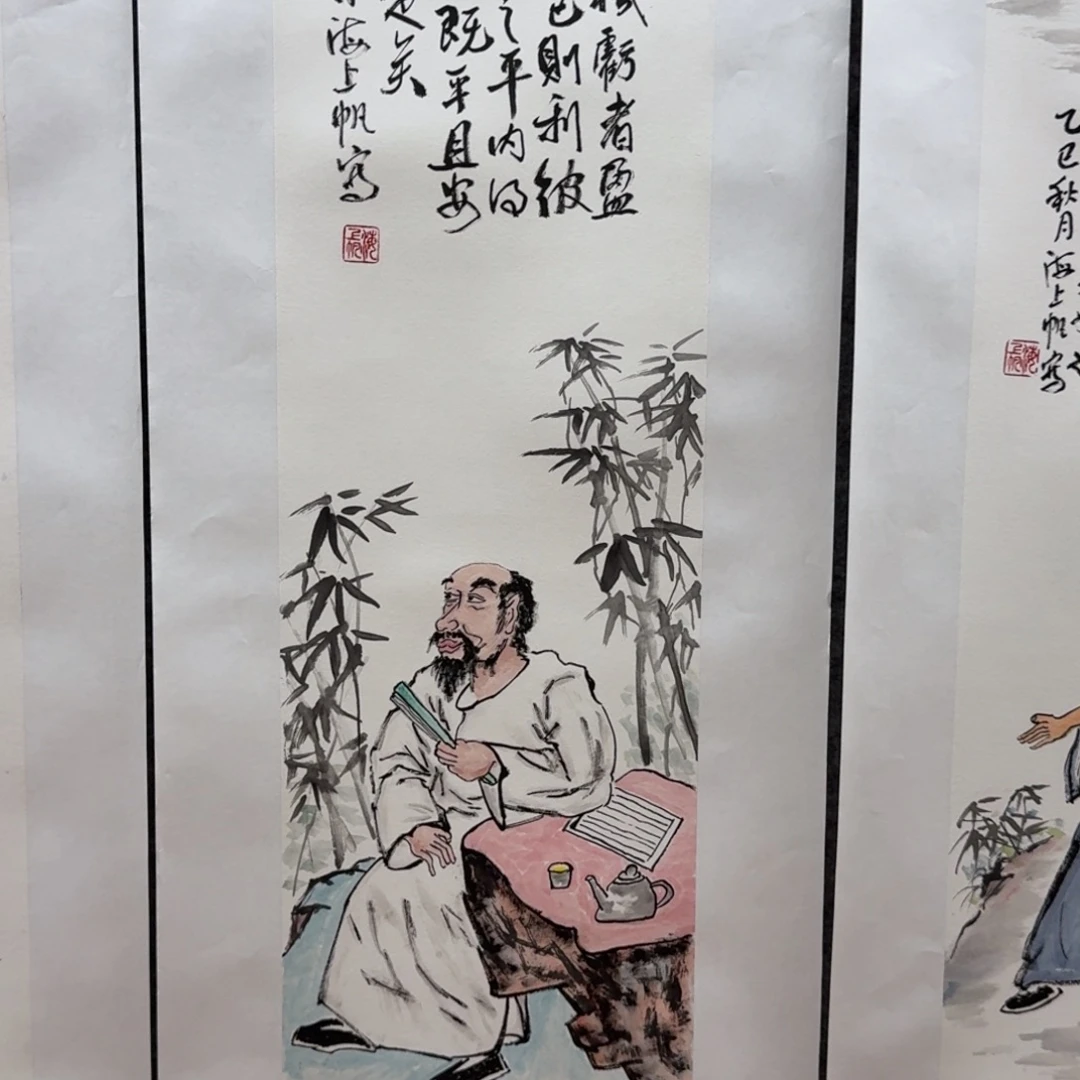 機虧者盈
己則利彼
之平内得
既平且安
是矣
海上帆寫
乙巳秋月
海上帆寫